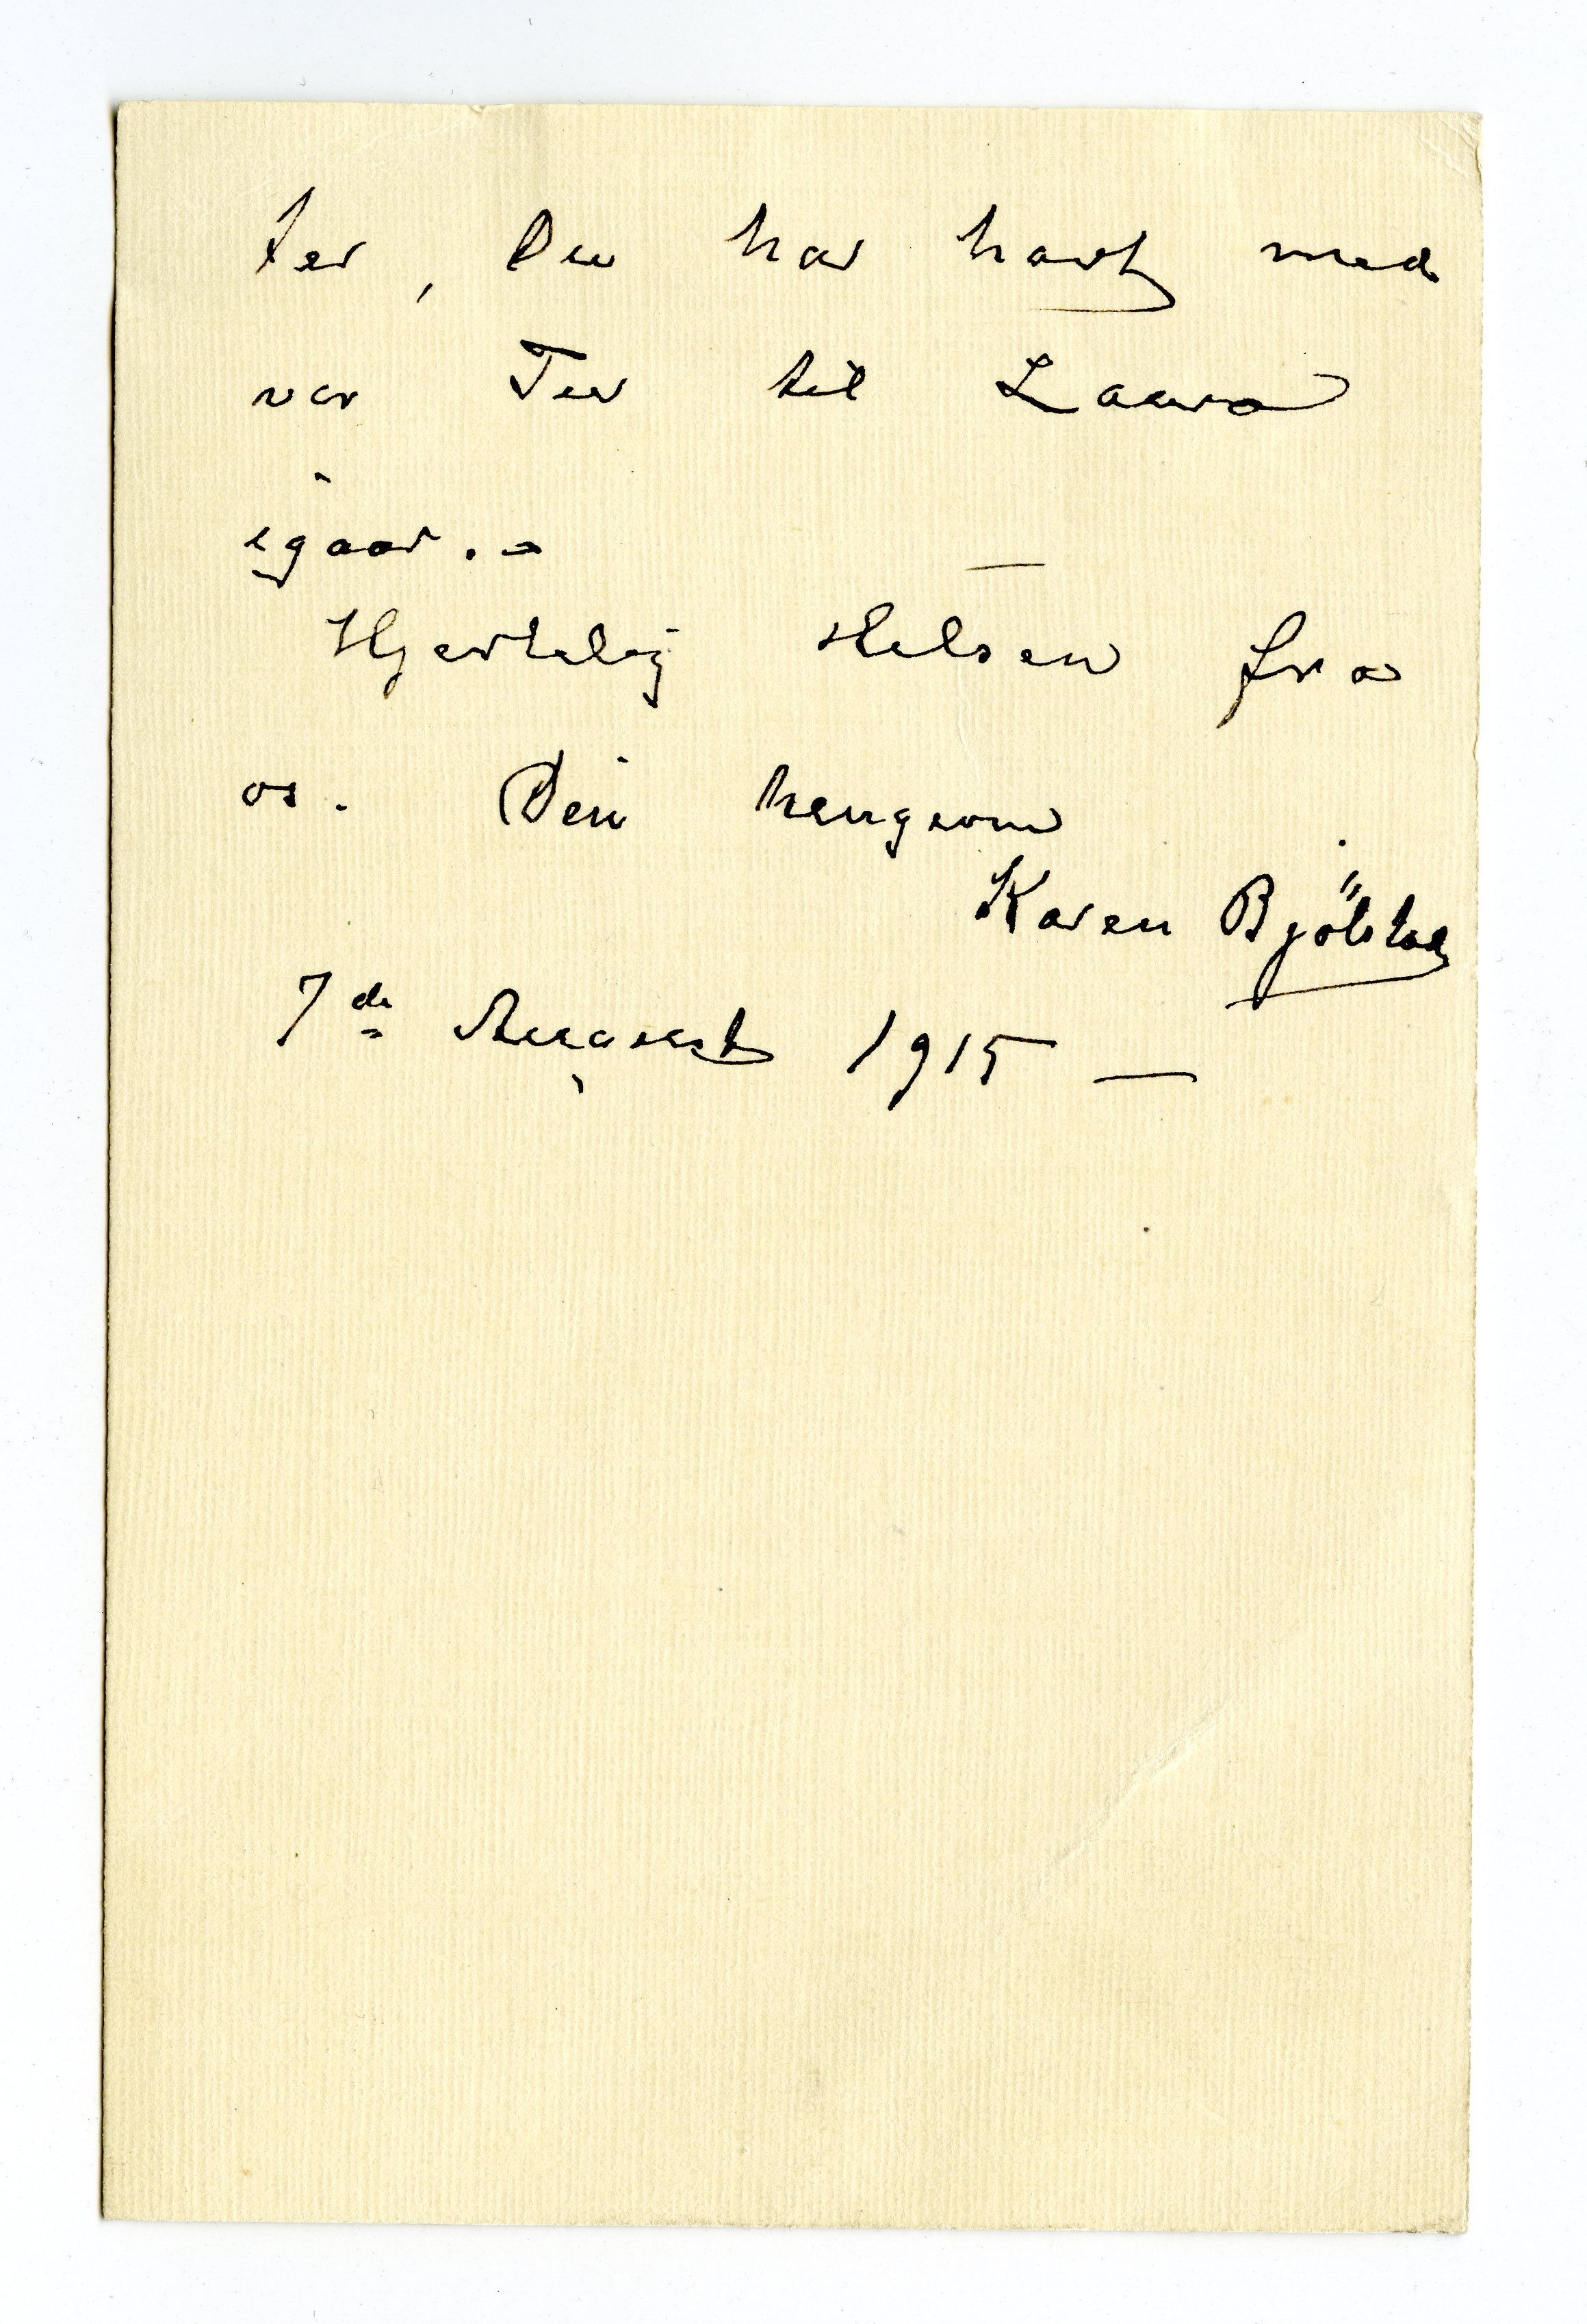 ter, Du har havt med
vor Tur til Laura
igaar. –
Hjertelig Hilsen fra
os. Din hengivne
Karen Bjölstad
7de August 1915 —